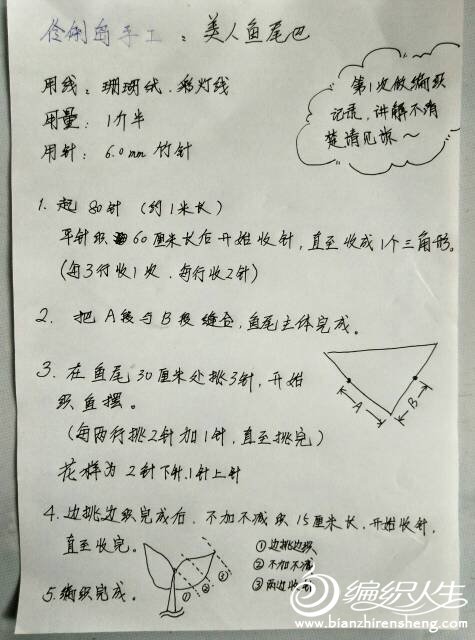 伶俐岛手工：美人鱼尾巴
用线：珊瑚绒、彩灯线
用量：1斤半
用针：6.0mm 竹针
第1次做编织
记录，讲解不清
楚请见谅~
1. 起80针（约1米长）
平针织60厘米长后开始收针，直至收成1个三角形。
（每3行收1次，每行收2针）
2. 把A段与B段缝合，鱼尾主体完成。
3. 在鱼尾30厘米处挑3针，开始
织鱼摆。
（每两行挑2针加1针，直至挑完）
花样为2针下针，1针上针
A
B
4. 边挑边织完成后，不加不减织15厘米长，开始收针，
直至收完。
5. 编织完成。
①
②
③
①边挑边织
②不加不减
③两边收针
编织人生
www.bianzhirensheng.com